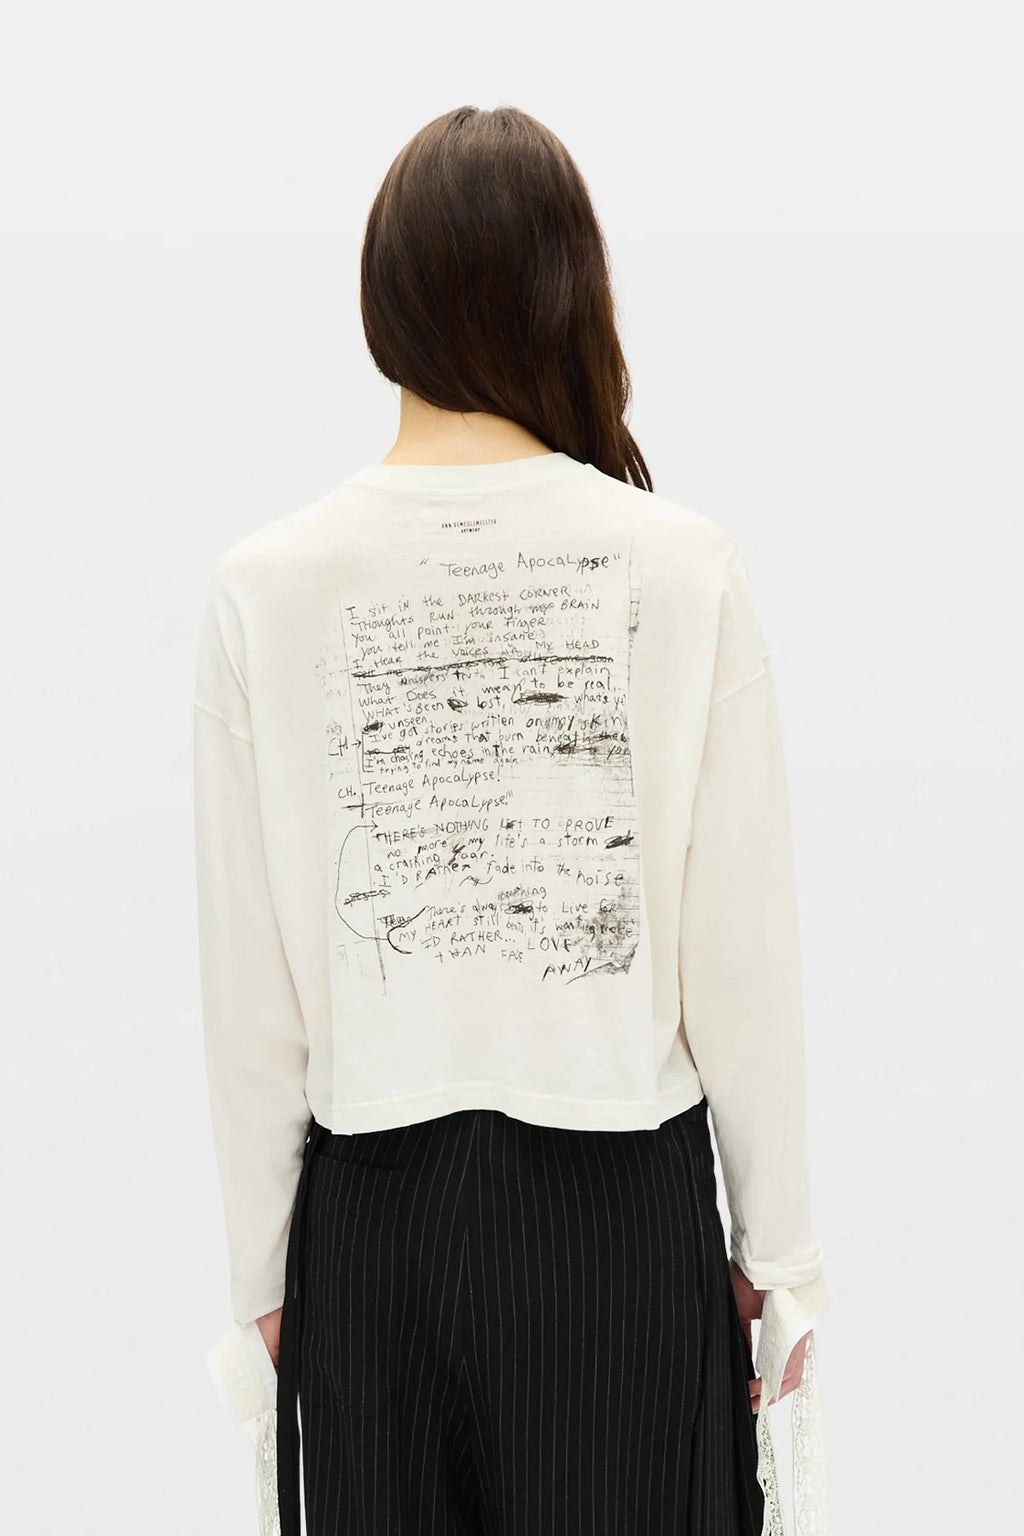 ANN DEMEULEMEESTER
ANTWERP
"Teenage ApocaLypse"
I sit in the DARKEST CORNER
Thoughts RUN through my BRAIN
You all point your Finger
you tell me I'm insane
I Hear the Voices in MY HEAD
They whispers truth I can't explain
What Does it mean to be real
WHAT'S BEEN lost, what's
unseen.
I've got stories written on my skin
dreams that burn beneath
CH → I'm chasing echoes in the rain,
trying to find my name again
CH. Teenage ApocaLypse!
Teenage ApocaLypse!"
THERE'S NOTHING Left TO PROVE
no more my life's a storm
a crashing roar.
I'D RATHER fade into the noise
something
There's always to Live for
MY HEART still beats it's wanting more
I'D RATHER... LOVE
tHAN FADE
AWAY